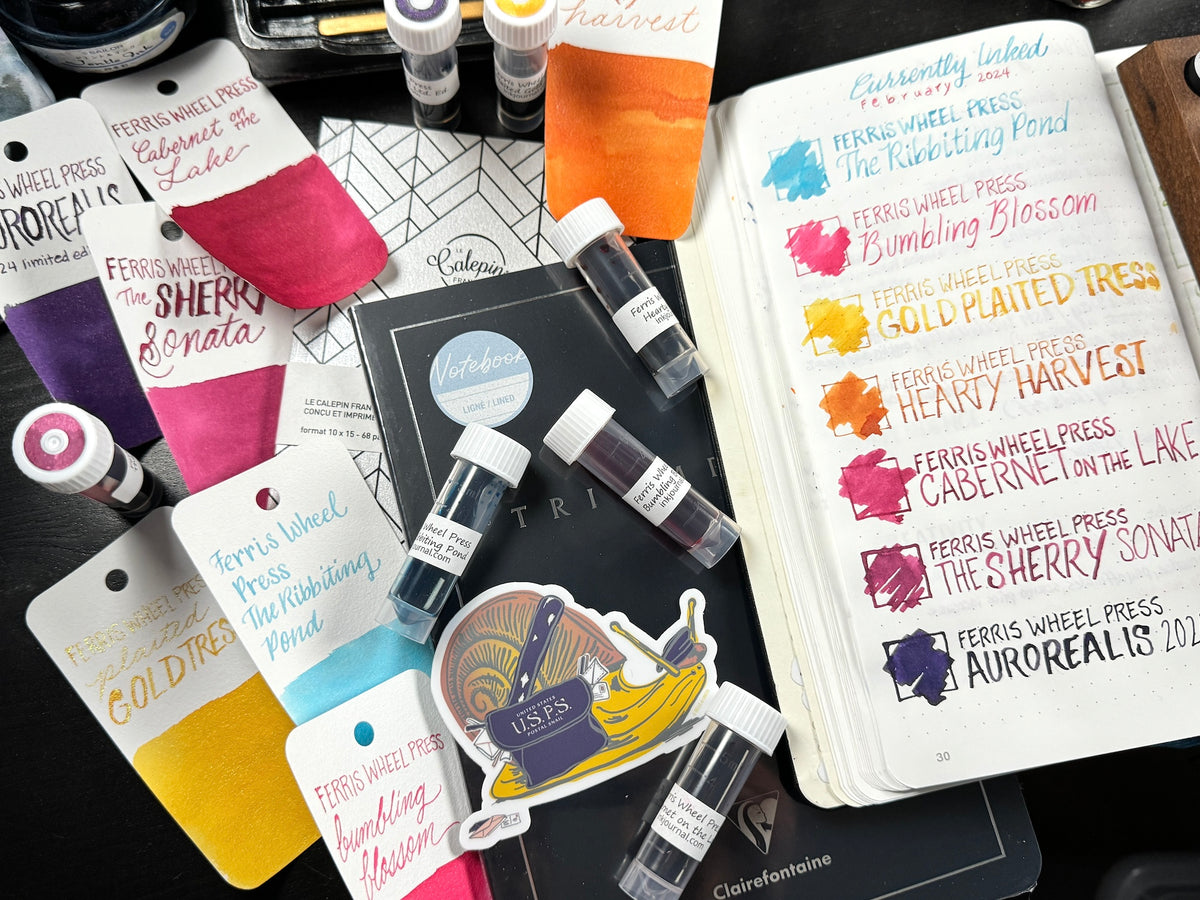 FERRIS WHEEL PRESS
Cabernet on the
Lake
WHEEL PRESS
limited
FERRIS WHEEL
The SHERRY
Sonata
Ferris Wheel
Press
The Ribbiting
Pond
FERRIS WHEEL PRESS
plaited
GOLD TRESS
FERRIS WHEEL PRESS
bumbling
blossom
harvest
LE
Calepin
LE CALEPIN FRAN
CONÇU ET IMPRIMÉ
format 10 x 15 - 68
Notebook
LIGNÉ / LINED
Ferris
Heart
inkjo
Ferris Whee
Bumbling
inkjournal
Wheel Press
biting Pond
journal.com
UNITED STATES
U.S.P.S.
POSTAL SNAIL
ris Wheel Pre
net on the L
inkjournal.com
Clairefontaine
Currently Inked
February 2024
FERRIS WHEEL PRESS
The Ribbiting Pond
FERRIS WHEEL PRESS
Bumbling Blossom
FERRIS WHEEL PRESS
GOLD PLAITED TRESS
FERRIS WHEEL PRESS
HEARTY HARVEST
FERRIS WHEEL PRESS
CABERNET ON THE LAKE
FERRIS WHEEL PRESS
THE SHERRY SONATA
FERRIS WHEEL PRESS
AUROREALIS 202
30